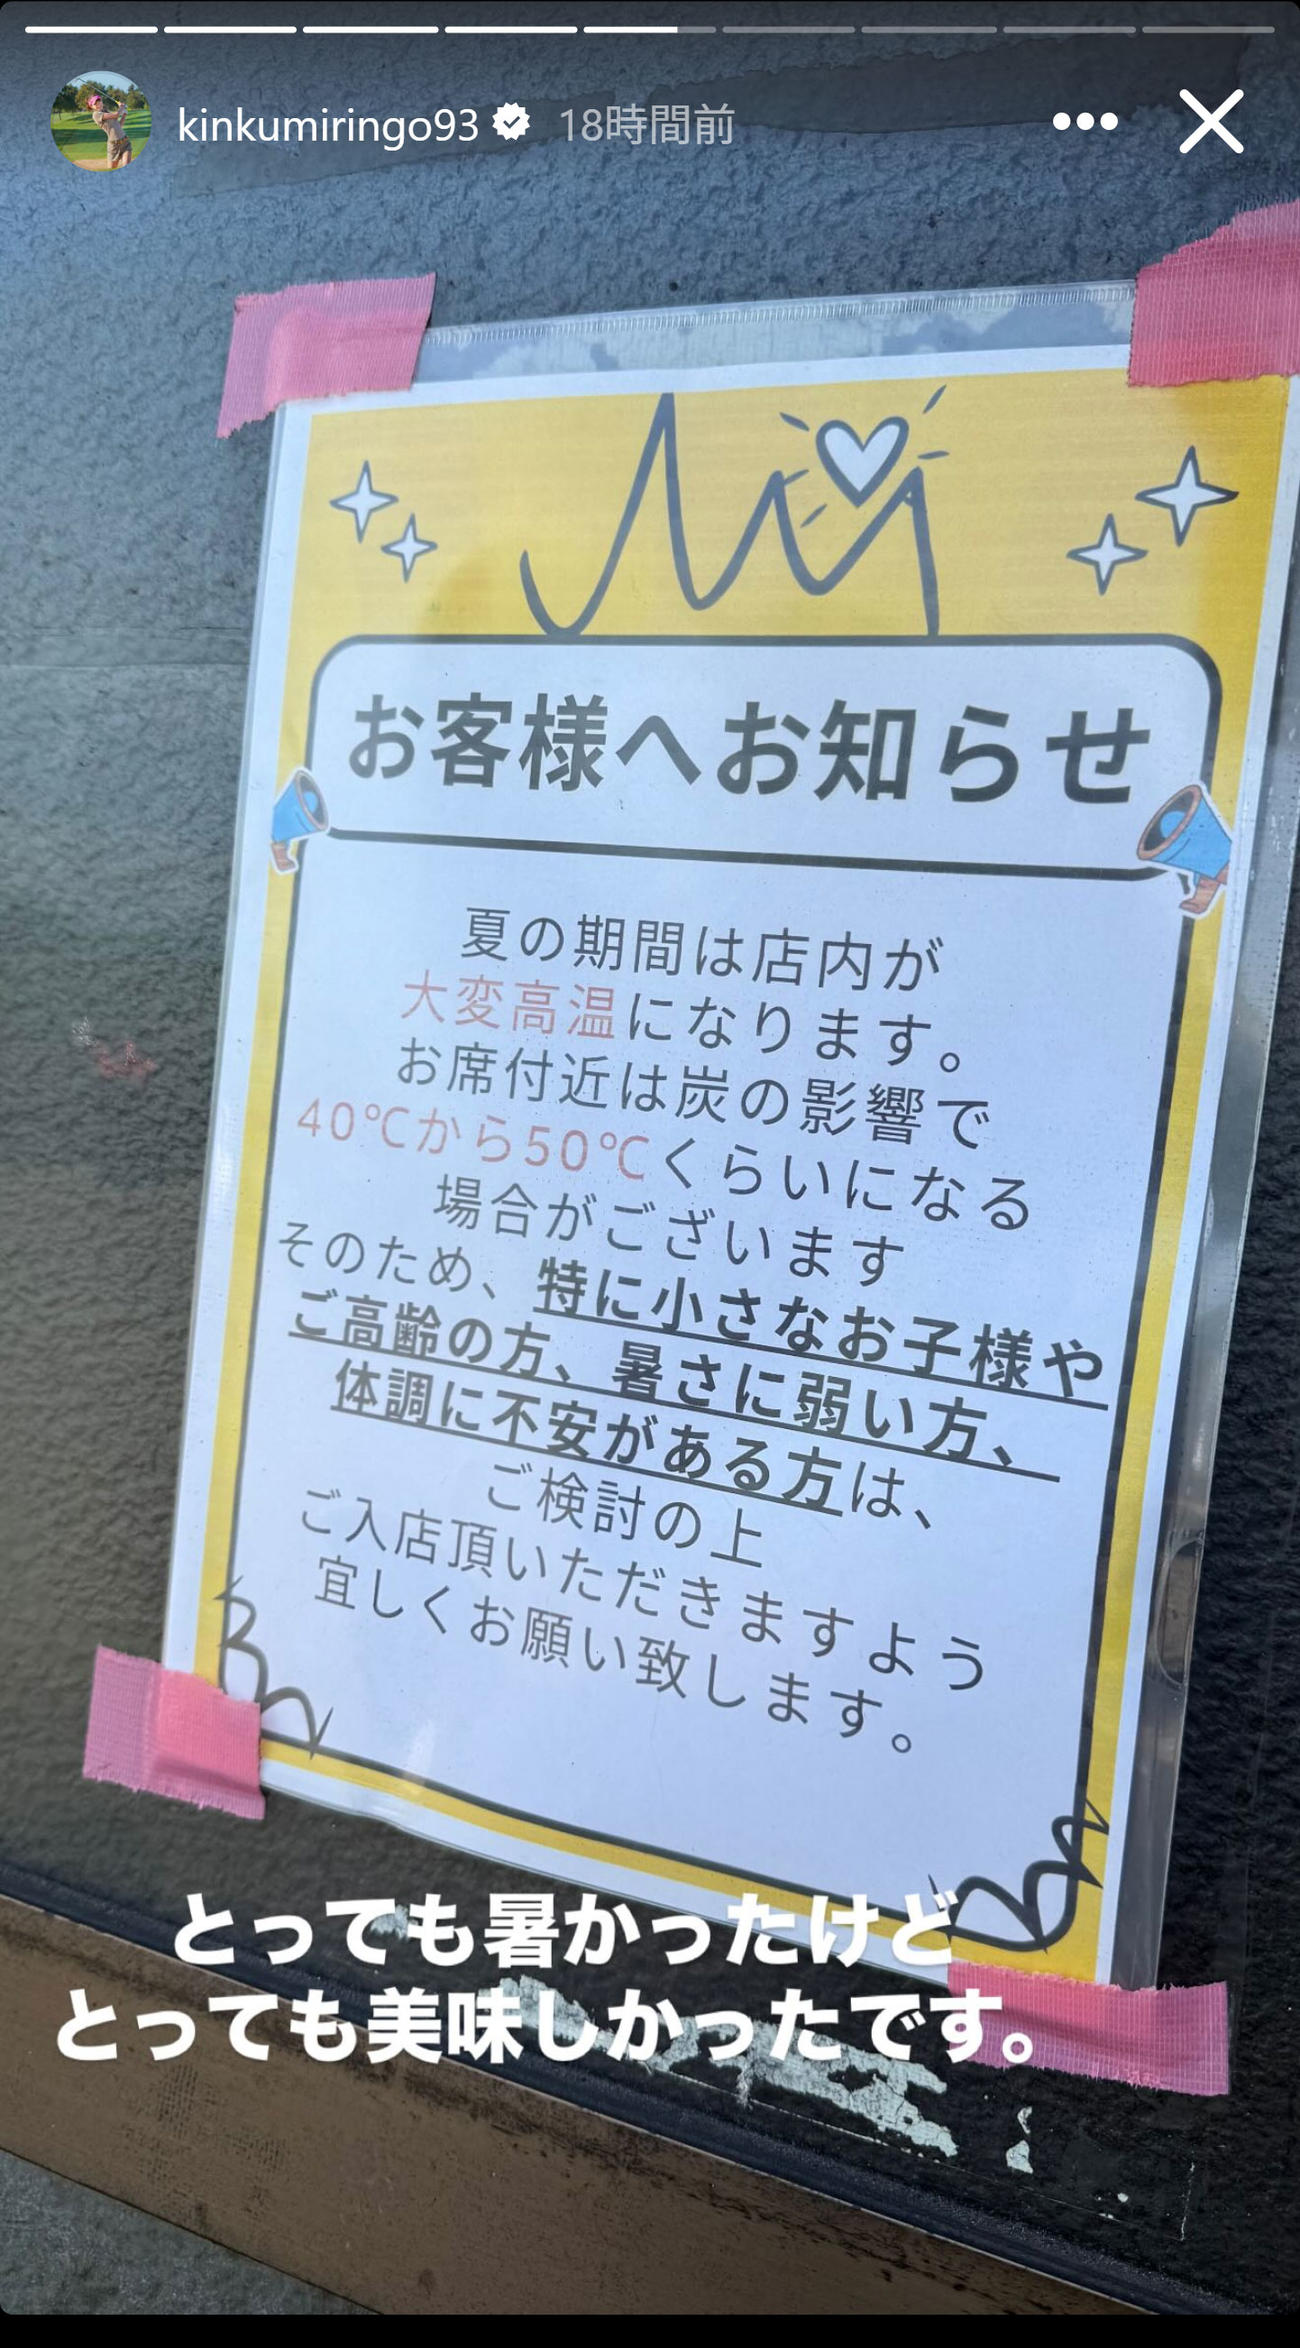 kinkumiringo93 18時間前
お客様へお知らせ
夏の期間は店内が
大変高温になります。
お席付近は炭の影響で
40℃から50℃くらいになる
場合がございます
そのため、特に小さなお子様や
ご高齢の方、暑さに弱い方、
体調に不安がある方は、
ご検討の上
ご入店頂いただきますよう
宜しくお願い致します。
とっても暑かったけど
とっても美味しかったです。